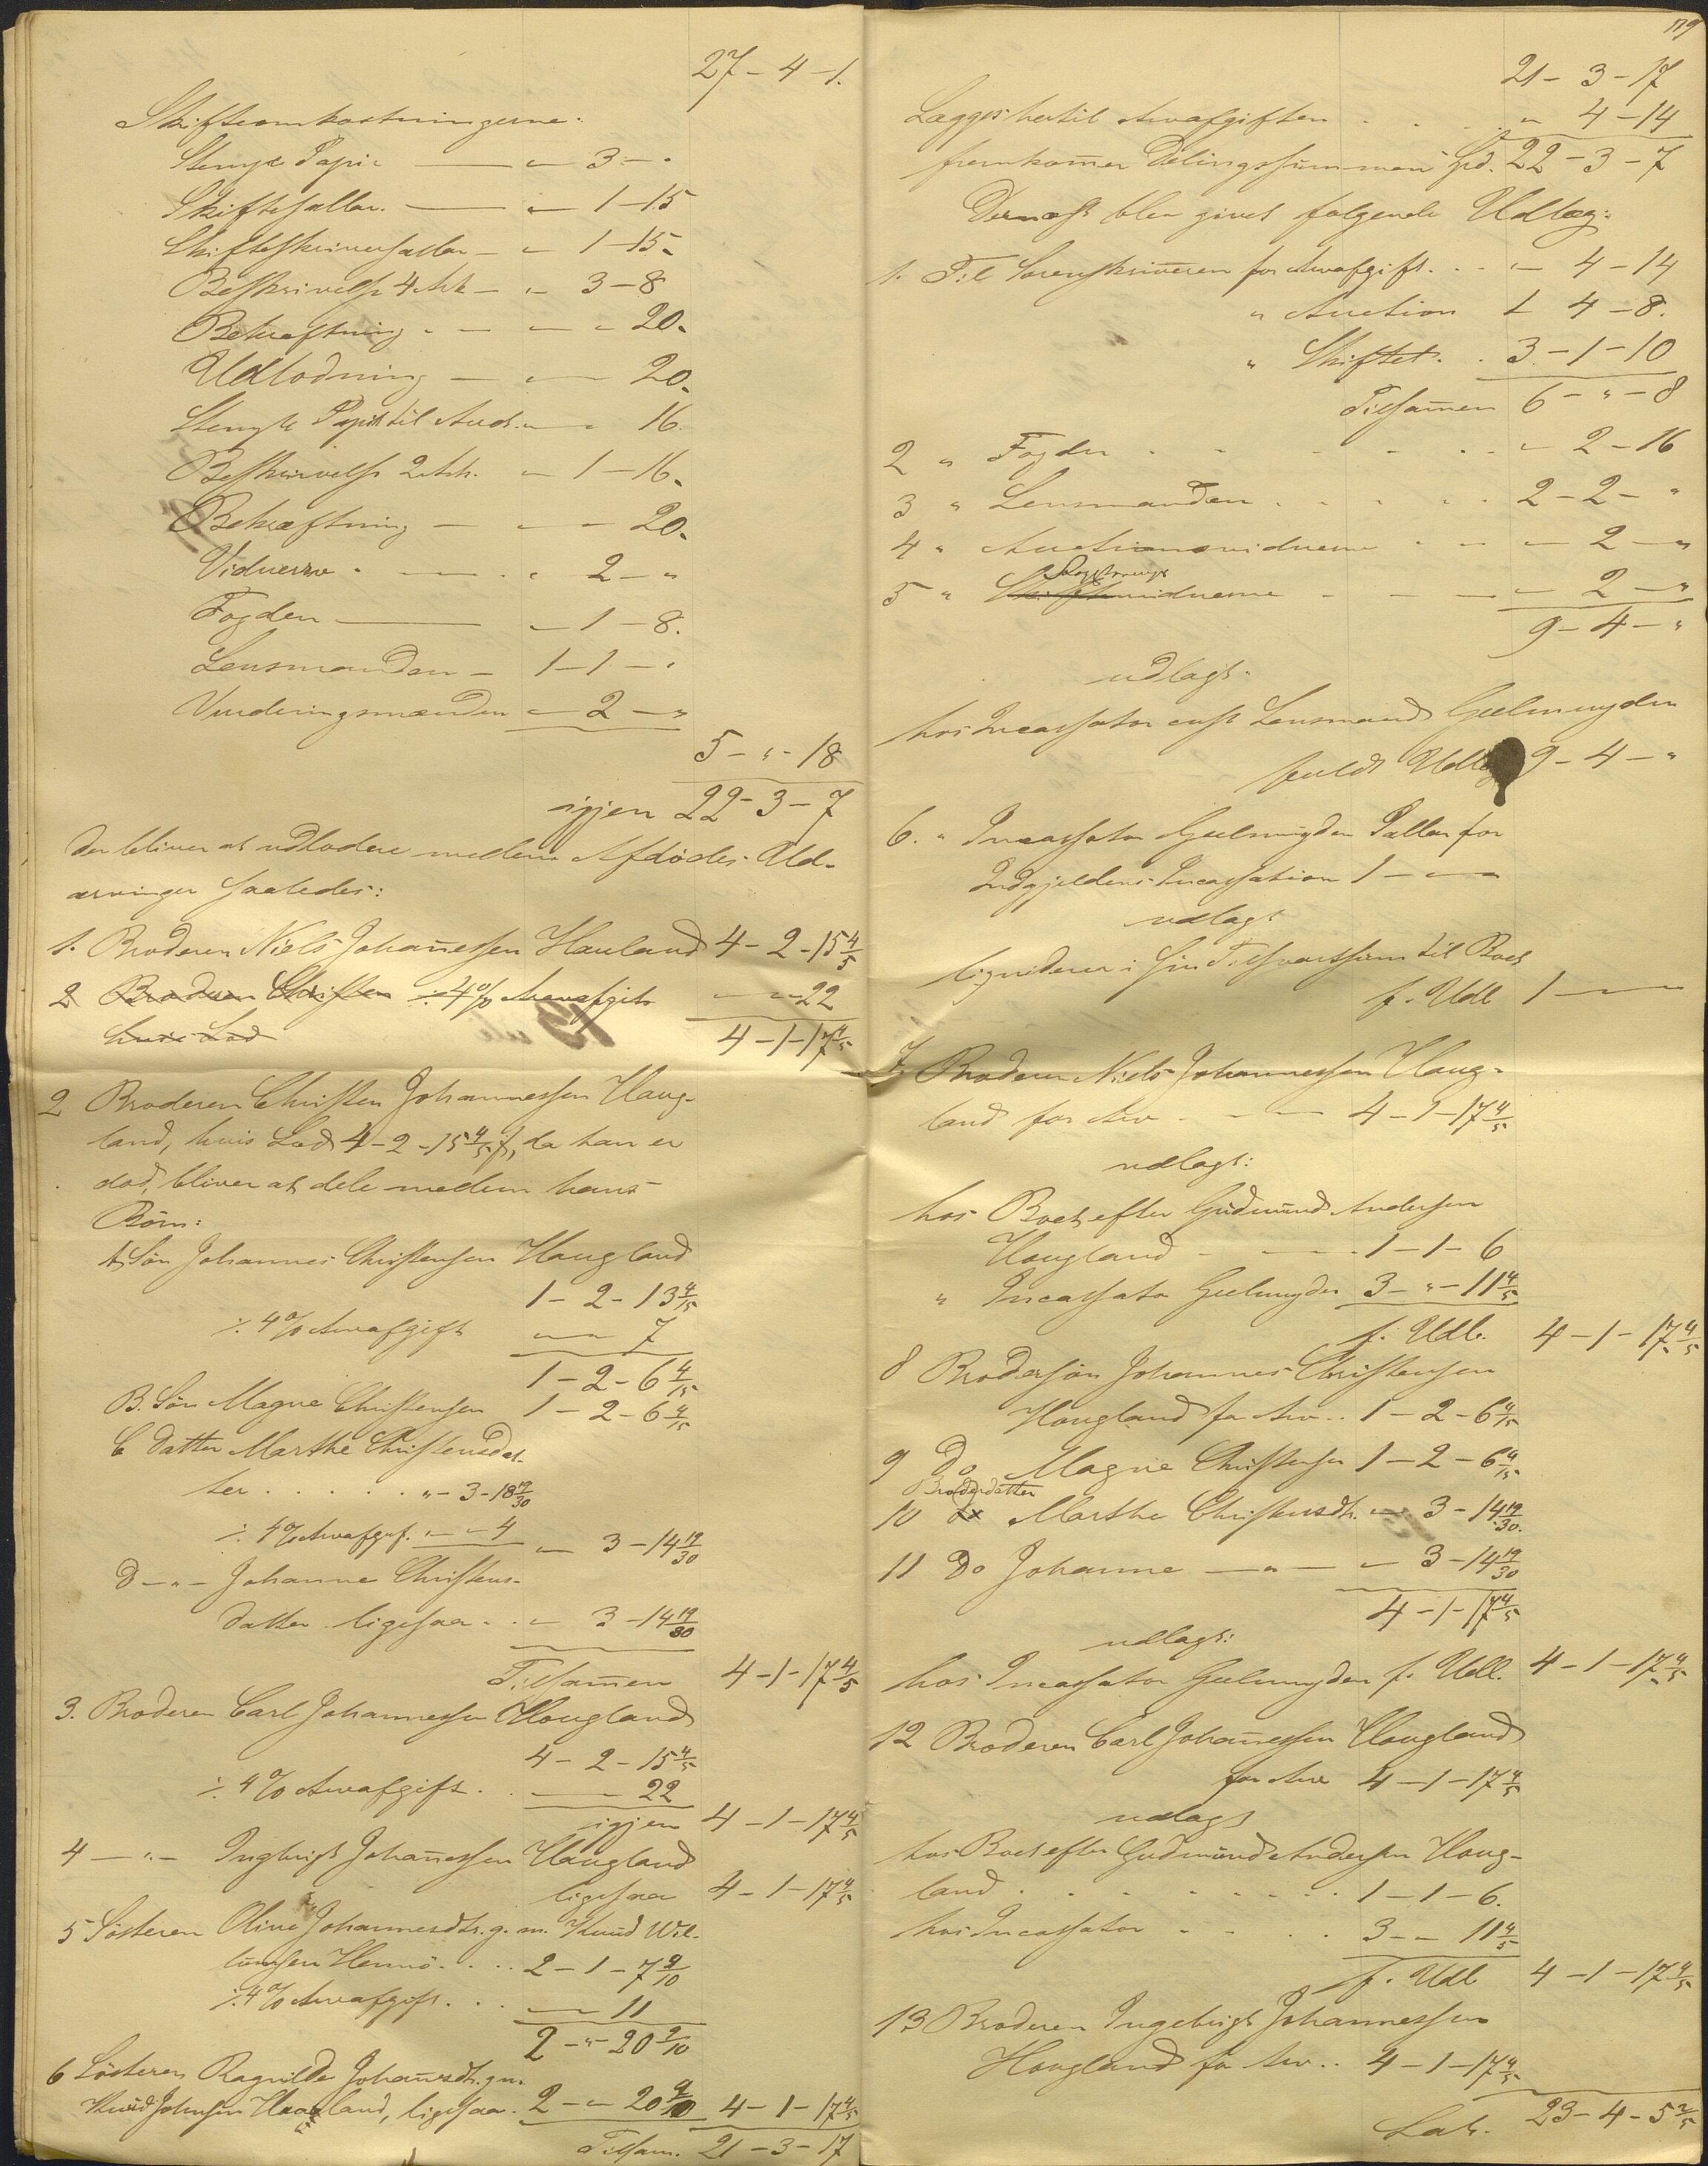 27 - 4 - 1.
Skifteomkostningerne:
Stempl. Papir — " 3 - "
Skiftesaller. — " 1 - 15
Skifteskriversaller — " 1 - 15.
Beskrivelse 4 Ark — " 3 - 8
Bekræftning - — " - 20.
Udlodning — " — 20.
Stempl. Papir til Auct. " — " 16.
Beskrivelse 2 Ark. " 1 - 16.
Bekræftning — " — 20.
Vidnerne . — " 2 - "
Fogden — " 1 - 8.
Lensmanden - 1 - 1 - "
Vurderingsmænden " 2 - "
5 - " - 18
igjen 22 - 3 - 7
der bliver at udlodere mellem Afdødes Ud-
arvinger saaledes:
1. Broderen Niels Johan̄essen Hauland 4 - 2 - 15 4/5
2 Broderen Christen ÷ 4% Arveafgift " - " - 22
hvis Lod 4 - 1 - 17 4/5
2 Broderen Christen Johannessen Haug-
land, hvis Lod 4 - 2 - 15 4/5 s, da han er
död, bliver at dele mellem hans
Börn:
A. Sön Johannes Christensen Haugland
1 - 2 - 13 4/15
÷ 4% Arveafgift " - " - 7
1 - 2 - 6 4/15
B. Sön Magne Christensen 1 - 2 - 6 4/15
C Datter Marthe Christensdat-
ter . . . . . " - 3 - 18 19/30
÷ 4% Arveafgift. " - " - 4 " 3 - 14 19/30
D — " — Johanne Christens-
datter ligesaa . . " 3 - 14 19/30
Tilsam̄en 4 - 1 - 17 4/5
3. Broderen Carl Johannessen Hougland
4 - 2 - 15 4/5
÷ 4% Arveafgift . " - " - 22
igjen 4 - 1 - 17 4/5
4 — " — Ingbrigt Johan̄essen Haugland
ligesaa 4 - 1 - 17 4/5
5 Sösteren Oline Johannesdtr. g. m. Knud Wil-
lumsen Hennö . . . 2 - 1 - 7 9/10
÷ 4% Arveafgift . . . " - " - 11
2 - " - 20 9/10
6 Sösteren Ragnilde Johan̄esdtr. g. m.
Knud Johnsen Haugland, ligesaa . 2 - " - 20 9/10 4 - 1 - 17 4/5
Tilsam. 21 - 3 - 17
179
21 - 3 - 17
Lægges hertil Arvafgiften . . . " 4 - 14
fremkom̄er Delingssummen Spd. 22 - 3 - 7
Dernæst blev givet følgende Udlæg:
1. Til Sorenskriveren for Arvafgift . . . " 4 - 14
" Auction 1 4 - 8.
" Skiftet . . 3 - 1 - 10
Tilsam̄en 6 - " - 8
2 " Fogden . . . . . " 2 - 16
3 " Lensmanden . . . . 2 - 2 - "
4 " Auctionsvidnerne . . — " 2 - "
5 " Skiftevidnerne - - — " 2 - "
9 - 4 - "
udlagt.
hos Incassator const Lensmand Geelmuyden
fuldt Udlæg 9 - 4 - "
6. " Incassator Geelmuyden Sallær for
Indgjeldens Incassation 1 - " - "
udlagt
ligviderer i sin Tilsvarssum til Boet
f. Udl 1 - " - "
7. Broderen Niels Johannessen Haug-
land for Arv - - — 4 - 1 - 17 4/5
udlagt:
hos Boet efter Gudmund Andersen
Haugland - - — 1 - 1 - 6
" Incassator Geelmuyden 3 - " - 11 4/5
f. Udl. 4 - 1 - 17 4/5
8 Brodersön Johannes Christensen
Hougland for Arv . . 1 - 2 - 6 4/15
9 Do Magne Christensen 1 - 2 - 6 4/15
Broderdatter
10 Do Marthe Christensdtr. " 3 - 14 19/30.
11 Do Johanne — " — " 3 - 14 19/30
4 - 1 - 17 4/5
udlagt:
hos Incassator Geelmuyden f. Udl. 4 - 1 - 17 4/5
12 Broderen Carl Johan̄essen Hougland
for Arv 4 - 1 - 17 4/5
udlagt
hos Boet efter Gudmund Andersen Haug-
land . . . . . . . . 1 - 1 - 6.
hos Incassator . . . . 3 - " - 11 4/5
f. Udl 4 - 1 - 17 4/5
13 Broderen Ingebrigt Johannessen
Hougland for Arv . . 4 - 1 - 17 4/5
Lat. 23 - 4 - 5 2/5